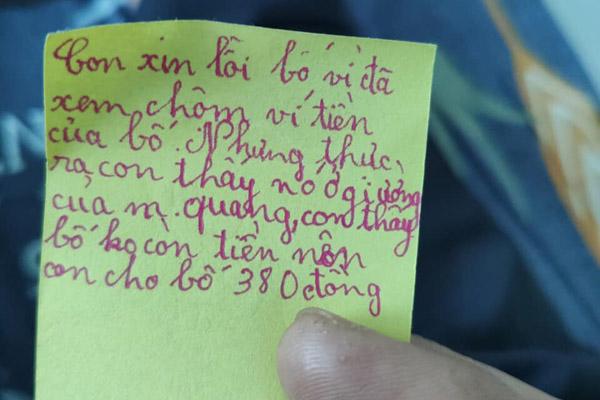 Con xin lỗi bố vì đã
xem chộm ví tiền
của bố. Nhưng thực
ra con thấy nó ở giường
của m. quang, con thấy
bố ko còn tiền nên
con cho bố 380 đồng